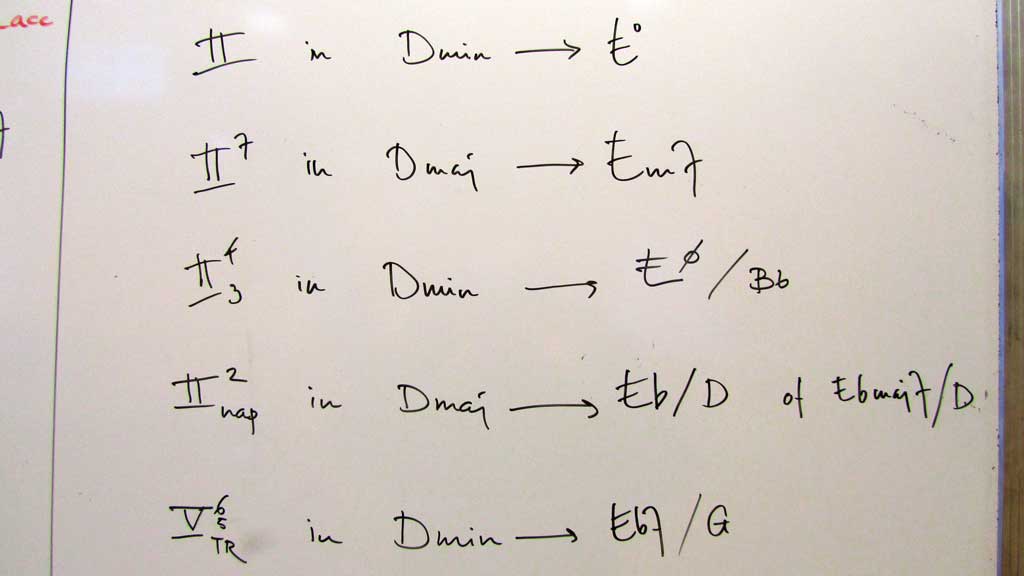 acc
II in Dmin → E°
II⁷ in Dmaj → Em7
II⁴₃ in Dmin → Eø / Bb
II² nap in Dmaj → Eb/D of Ebmaj7/D
V⁶₅ TR in Dmin → Eb7 / G